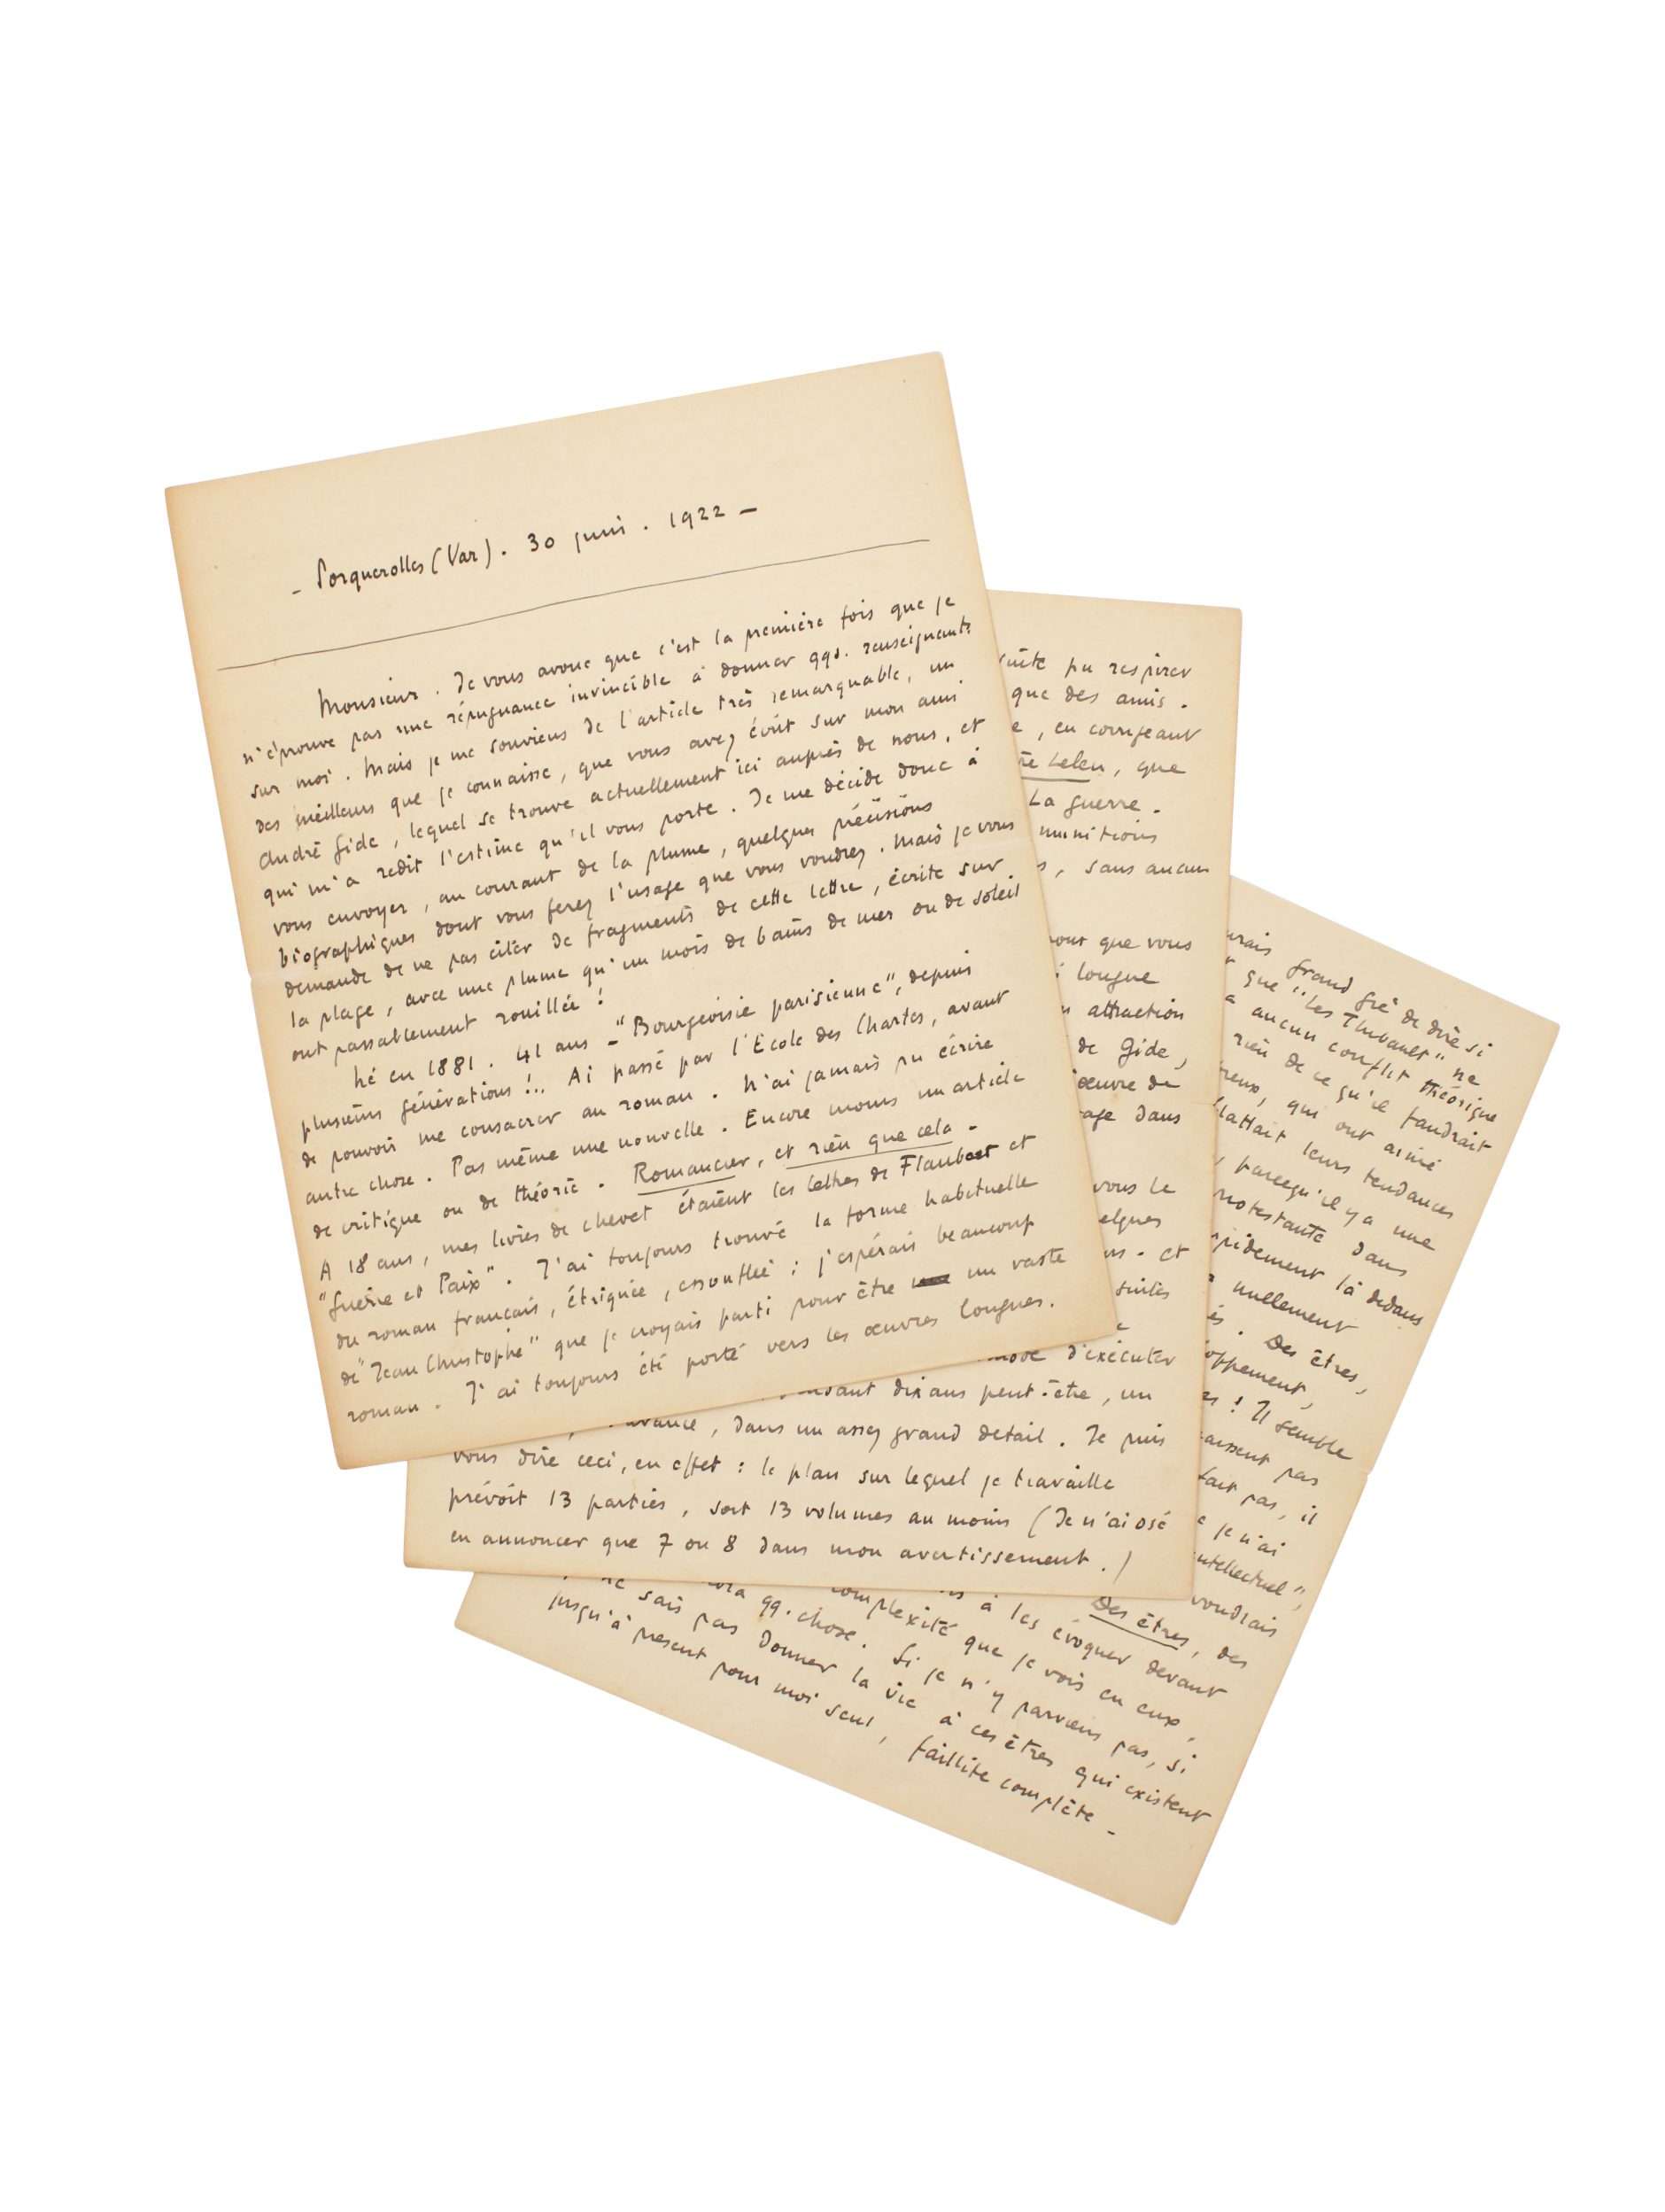 - Porquerolles (Var). 30 juin. 1922 -
Monsieur. Je vous avoue que c'est la première fois que je
n'éprouve pas une répugnance invincible à donner qqs. renseignents
sur moi. Mais je me souviens de l'article très remarquable, un
des meilleurs que je connaisse, que vous avez écrit sur mon ami
André Gide, lequel se trouve actuellement ici auprès de nous, et
qui m'a redit l'estime qu'il vous porte. Je me décide donc à
vous envoyer, au courant de la plume, quelques précisions
biographiques dont vous ferez l'usage que vous voudrez. Mais je vous
demande de ne pas citer de fragments de cette lettre, écrite sur
la plage, avec une plume qu'un mois de bains de mer ou de soleil
ont passablement rouillée !
Né en 1881. 41 ans - "Bourgeoisie parisienne", depuis
plusieurs générations !.. Ai passé par l'Ecole des Chartes, avant
de pouvoir me consacrer au roman. N'ai jamais pu écrire
autre chose. Pas même une nouvelle. Encore moins un article
de critique ou de théorie. Romancier, et rien que cela -
A 18 ans, mes livres de chevet étaient les lettres de Flaubert et
"Guerre et Paix". J'ai toujours trouvé la forme habituelle
du roman français, étriquée, essouflée : j'espérais beaucoup
de "Jean Christophe" que je croyais parti pour être un vaste
roman. J'ai toujours été porté vers les œuvres longues.
suite pu respirer
que des amis.
e, en corrigeant
re Leleu, que
La guerre.
munitions
s, sans aucun
pour que vous
i longue
n attraction
de Gide,
œuvre de
age dans
vous le
elques
ns. et
suites
e
d'exécuter
dant dix ans peut-être, un
avance, dans un assez grand detail. Je puis
vous dire ceci, en effet : le plan sur lequel je travaille
prévoit 13 parties, soit 13 volumes au moins (Je n'ai osé
en annoncer que 7 ou 8 dans mon avertissement.)
urais grand gré de dire si
que "Les Thibault" ne
a aucun conflit théorique
rien de ce qu'il faudrait
reux, qui ont aimé
flattait leurs tendances
, parcequ'il y a une
protestante dans
pidement là dedans
nullement
és. Des êtres,
oppement,
es ! Il semble
aissent pas
fait pas, il
e je n'ai
intellectuel",
voudrais
Des êtres, des
ns à les évoquer devant
complexité que je vois en eux,
ra qq. chose. Si je n'y parviens pas, si
ne sais pas donner la vie à ces êtres qui existent
jusqu'à présent pour moi seul, faillite complète -